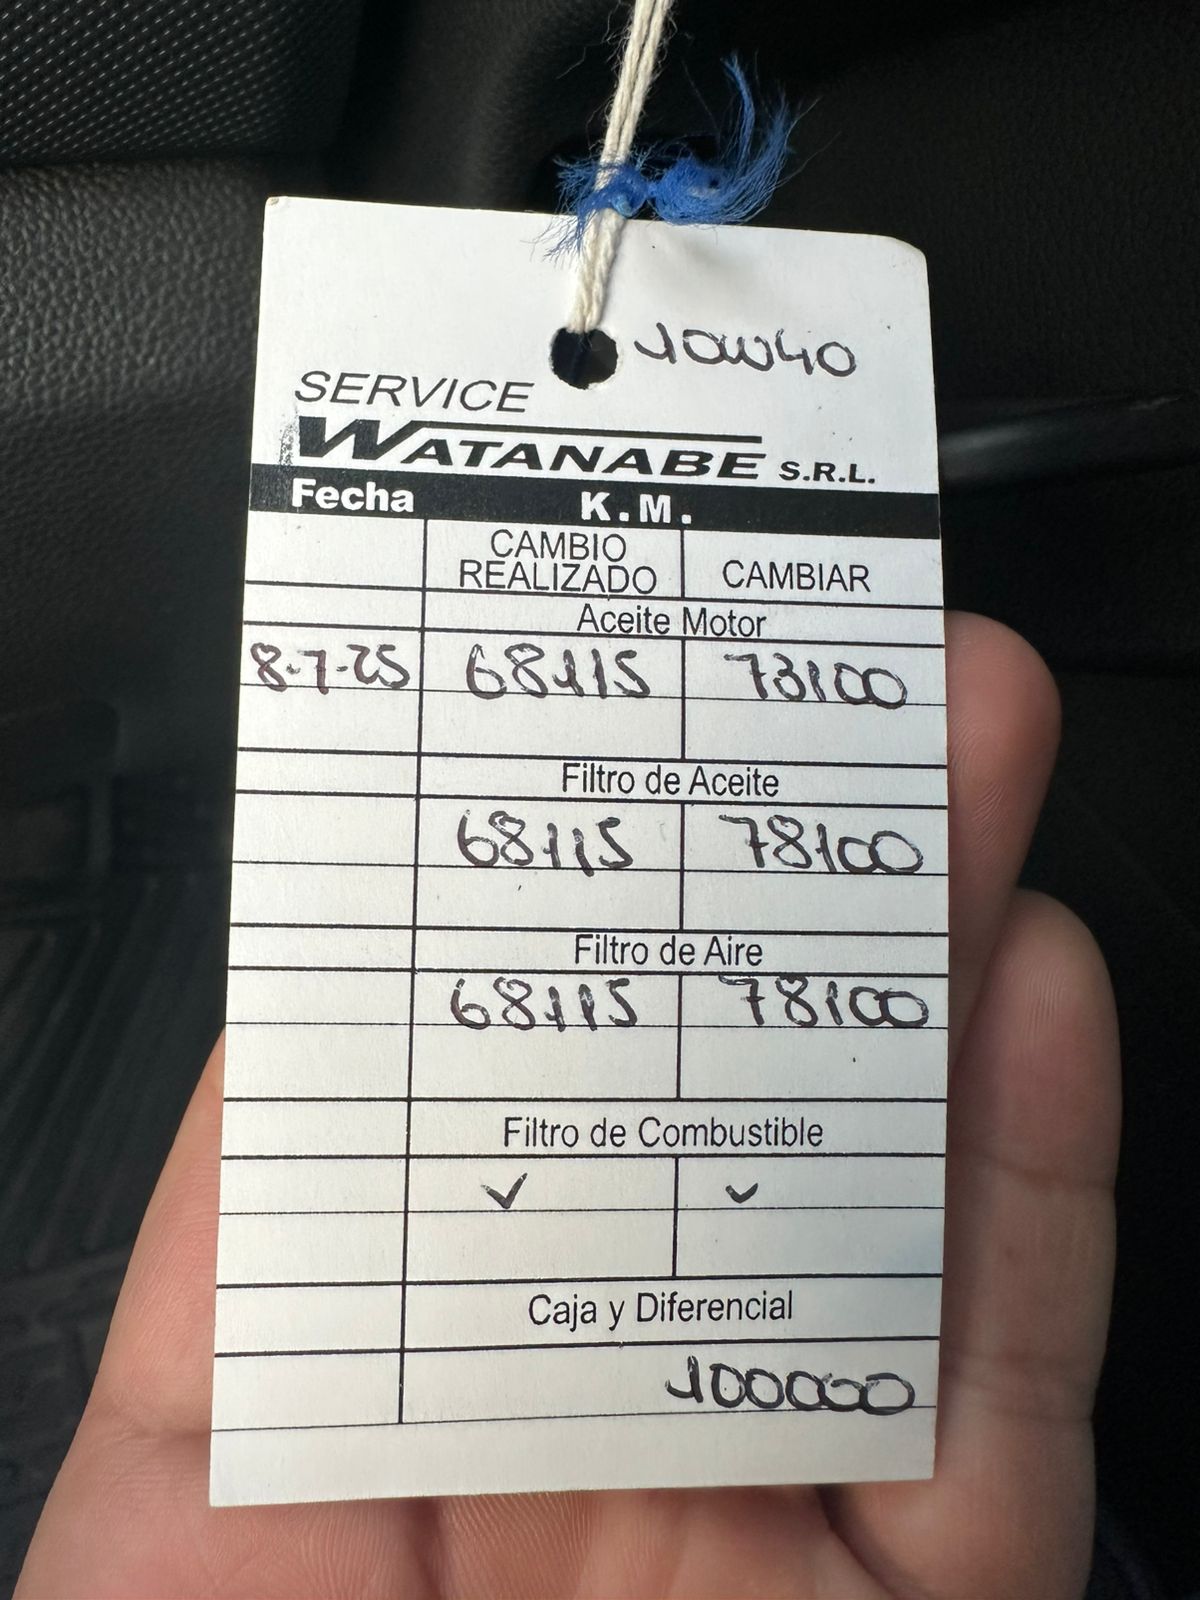 10W40
SERVICE
WATANABE S.R.L.
Fecha K.M.
CAMBIO REALIZADO CAMBIAR
Aceite Motor
8-7-25 68115 73100
Filtro de Aceite
68115 78100
Filtro de Aire
68115 78100
Filtro de Combustible
✓ ✓
Caja y Diferencial
100000